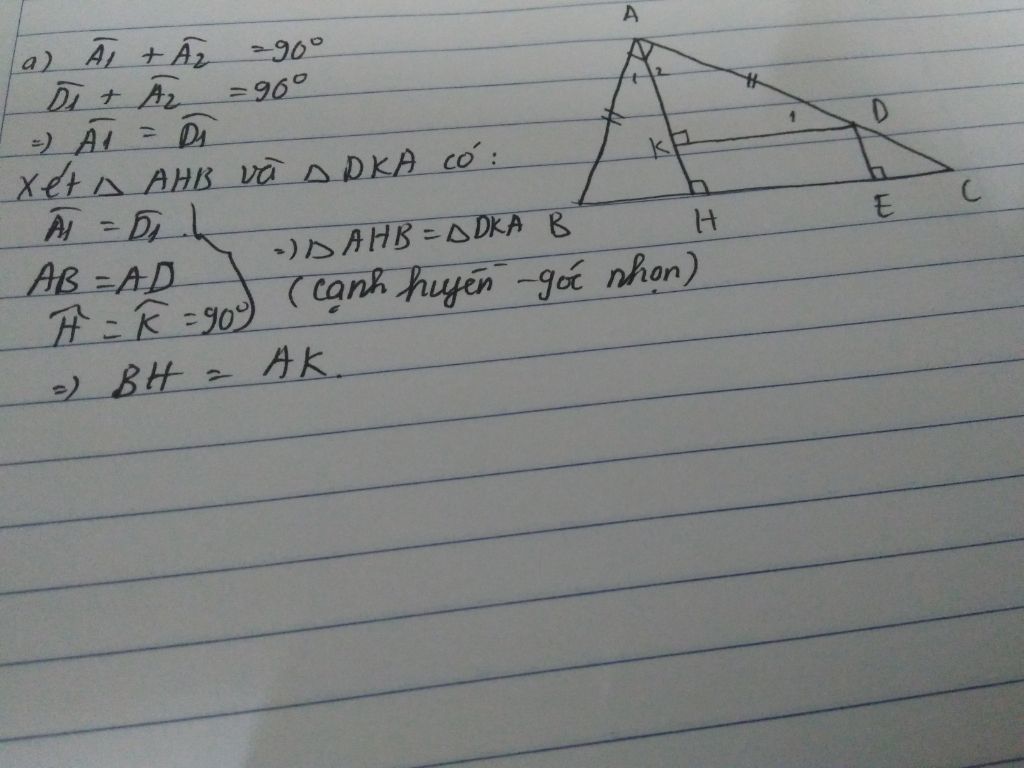 a) Â1 + Â2 = 90°
D̂1 + Â2 = 90°
=> Â1 = D̂1
Xét △ AHB và △ DKA có:
Â1 = D̂1
AB = AD
Ĥ = K̂ = 90°
=> △ AHB = △ DKA
(cạnh huyền - góc nhọn)
=> BH = AK.
A
1 2
D
1
K
B
H
E
C